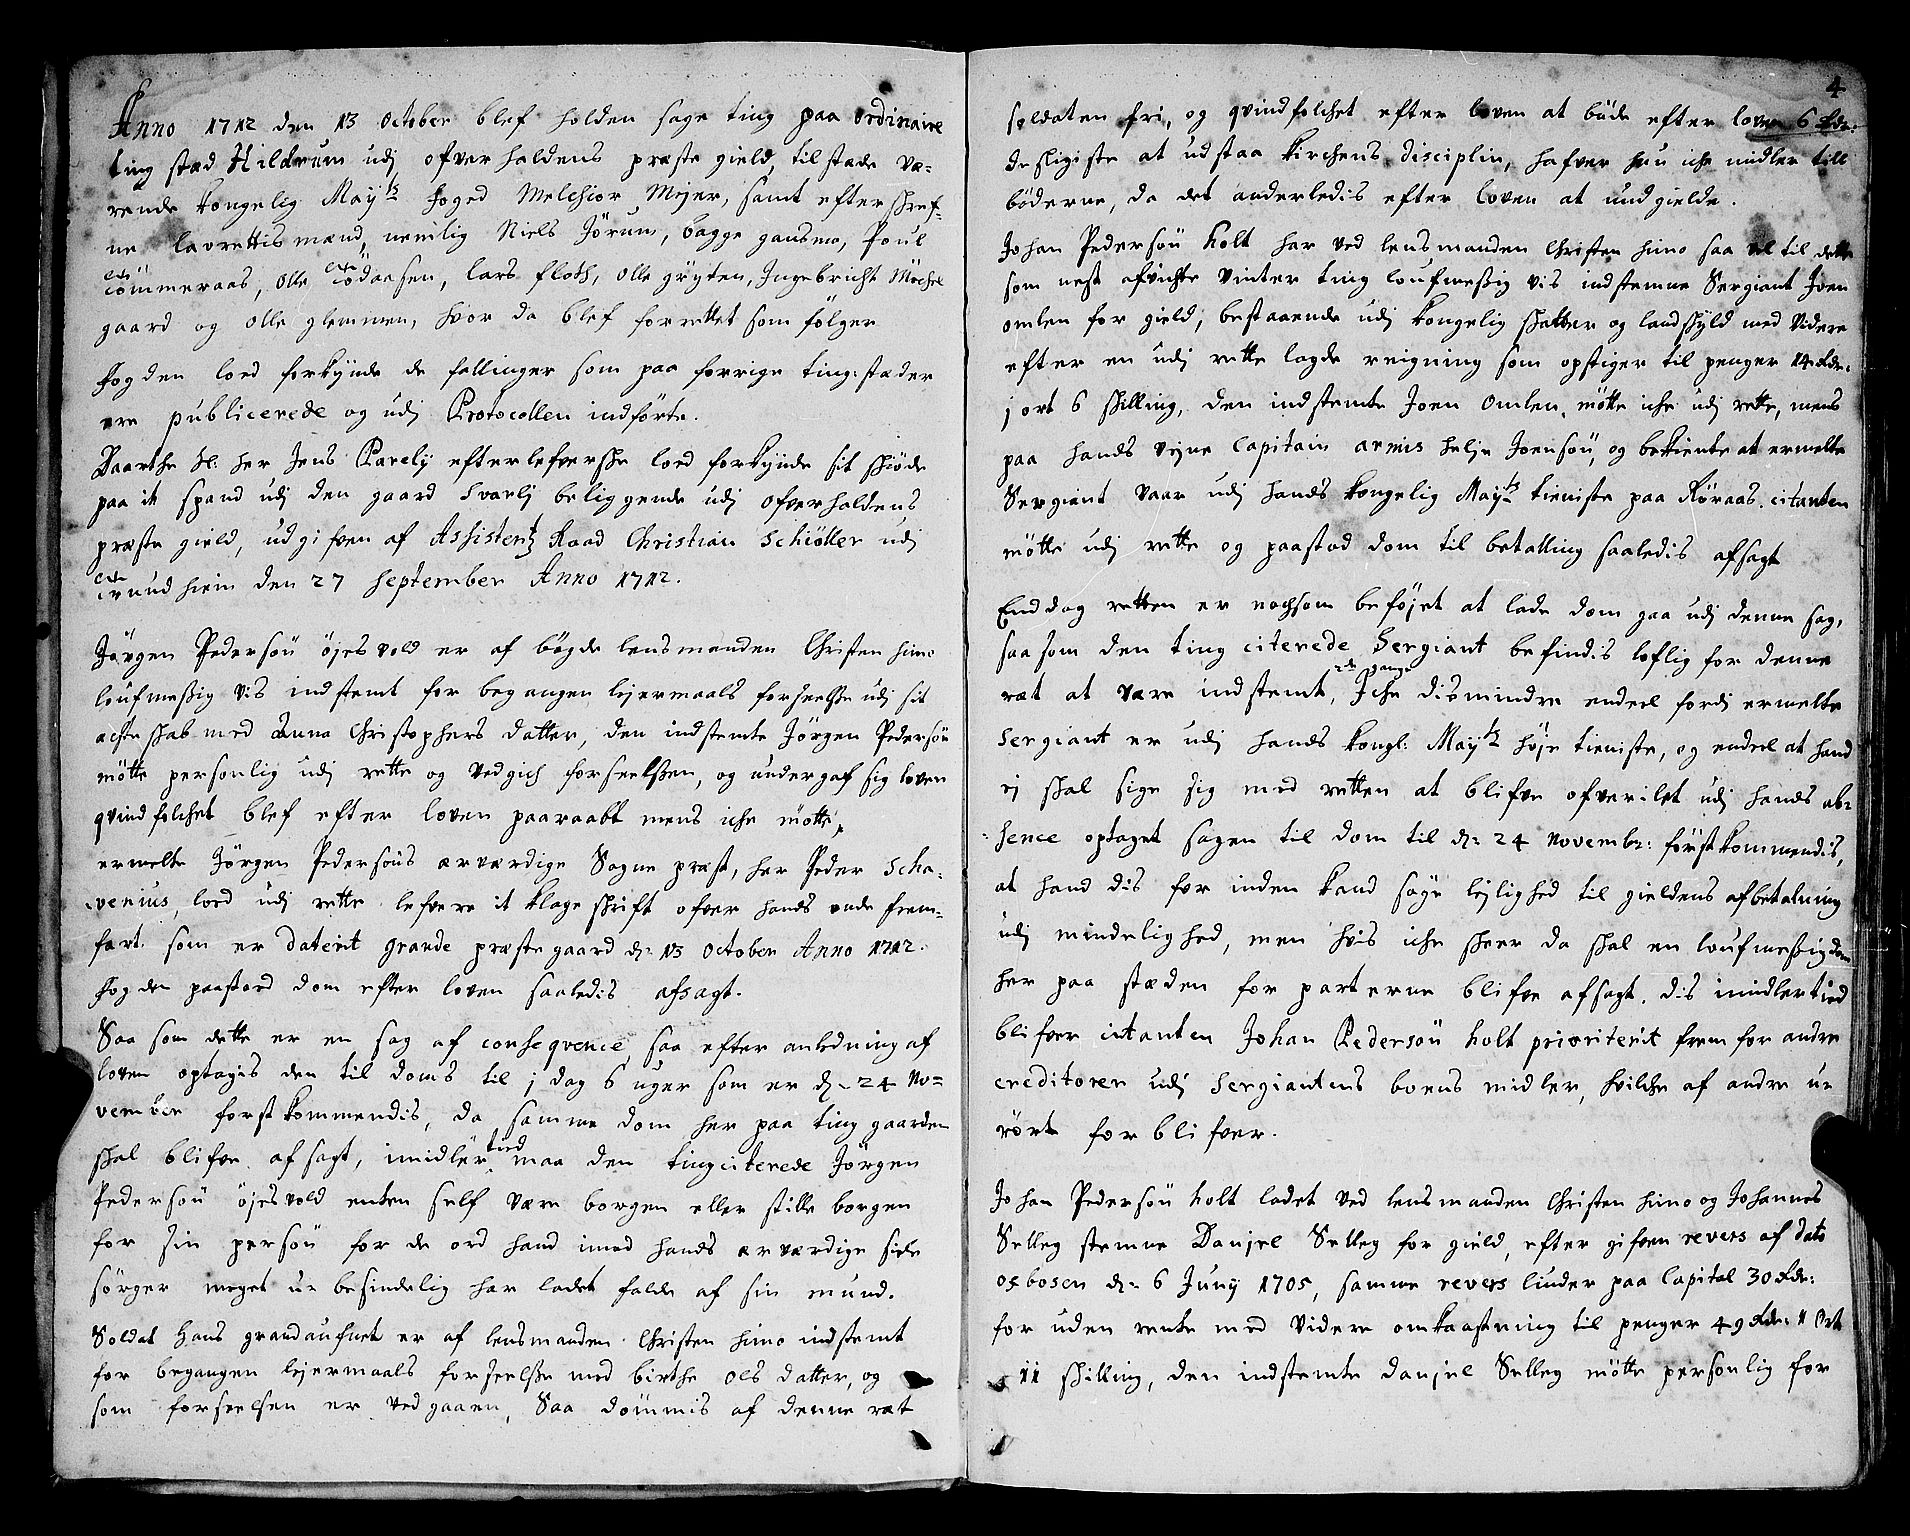 Anno 1712 den 13 October blef holden sage ting paa ordinaire
ting stæd Hildrum udj ofverhaldens præste gield, tilstæde væ-
rende kongelig Mayts foged Melchior Mejer, samt efterskref-
ne laurettismænd, nemlig Niels Jörum, bagge gansmo, Poul
Tömmeraas, Olle Tödaasen, Lars floth, Olle grÿten, Ingebricht Möchel
gaard og Olle glemmen, hvor da blef forrettet som fölger
fogden loed forkÿnde de fallinger som paa forrige tingstæder
ere publicerede og udj Protocollen indförte.
Daarthe Sl: her Jens Parelÿ efterlefverske loed forkÿnde sit skiöde
paa it spand udj den gaard Svarlj beliggende udj ofverhaldens
præste gield, udgifven af Assistentz Raad Christian Schiöller udj
Trundhiem den 27 September Anno 1712.
Jörgen Pedersöü öjesvold er af bögde lensmanden Christen himo
loufmessig vis indstemt for begangen lejermaals forseelsse udj sit
ægteskab med Anna Christophers datter, den indstemte Jörgen Pedersöü
mötte personlig udj rette og vedgich forseelssen, og undergaf sig loven
qvindfolchet blef efter loven paaraabt mens iche mötte,
ermelte Jörgen Pedersöüs ærværdige Sogne præst, her Peder Scha-
venius, loed udj rette lefvere it klage skrift ofver hands onde frem-
fart som er daterit grande præstegaard dn 13 October Anno 1712.
fogden paastoed dom efter loven saaledis afsagt.
Saa som dette er en sag af conseqvence, saa efter anledning af
loven optages den til doms til i dag 6 uger som er dn 24 No-
vember forstkommendis, da samme dom her paa ting gaarden
skal blifve afsagt, imidlertied maa den tingciterede Jörgen
Pedersöü öjesvold enten self være borgen eller stille borgen
for sin persöü for de ord hand imod hands ærværdige siele
sörger meget u-besindelig har ladet falde af sin mund.
Soldat Hans grandaufnet er af lensmanden Christen himo indstemt
for begangen lejermaals forseelsse med birthe Ols datter, og
som forseelsen er vedgaaen, Saa dömmis af denne ræt
4
soldaten fri, og qvindfolchet efter loven at böde efter loven 6 Rdr:
desligiste at udstaa kirchens disciplin, hafver hun iche midler till
böderne, da det anderledis efter loven at undgielde.
Johan Pedersöü holt har ved lensmanden Christen himo saa vel til dette
som nest afvichte vinter ting loufmessig vis indstemne Sergiant Joen
omlen for gield, bestaaende udj kongelig skatter og landskÿld med videre
efter en udj rette lagde reigning som opstiger til penger 14 Rdr:
j ort 6 skilling, den indstemte Joen Omlen mötte iche udj rette, mens
paa hands vegne Capitain armis helje Joensöü, og bekiente at ermelte
Sergiant vaar udj hands kongelig Mayts tieniste paa Röraas. citanten
mötte udj rette og paastod dom til betalling saaledis afsagt
End dog retten er nochsom beföjet at lade dom gaa udj denne sag,
saasom den ting citerede Sergiant befindis loflig for denne
ræt at være indstemt, 2de gange Iche dismindre endeel fordj ermelte
Sergiant er udj hands kongl: Mayts höje tieniste, og endeel at hand
ej skal sige sig med retten at blifve ofverilet udj hands ab-
sence optaget sagen til dom til dn 24 Novembr: först kommendis,
at hand dis for inden kand söge lejlighed til gieldens afbetalning
udj mindelighed, men hvis iche skeer da skal en loufmessig dom
her paa stæden for parterne blifve afsagt. dis imidlertied
blifver citanten Johan Pedersöü holt prioriterit frem for andre
creditorer udj Sergiantens boens midler, hvilche af andre u-
rört forblifver.
Johan Pedersöü holt ladet ved lensmanden Christen himo og Johannes
Selleg stemne Danjel Selleg for gield, efter gifven revers af dato
Osbosen dn 6 Junÿ 1705, samme revers liuder paa Capital 30 Rdr:
for uden rente med videre omkaastning til penger 49 Rdr: 1 Ort
11 skilling, den indstemte danjel Selleg mötte personlig for